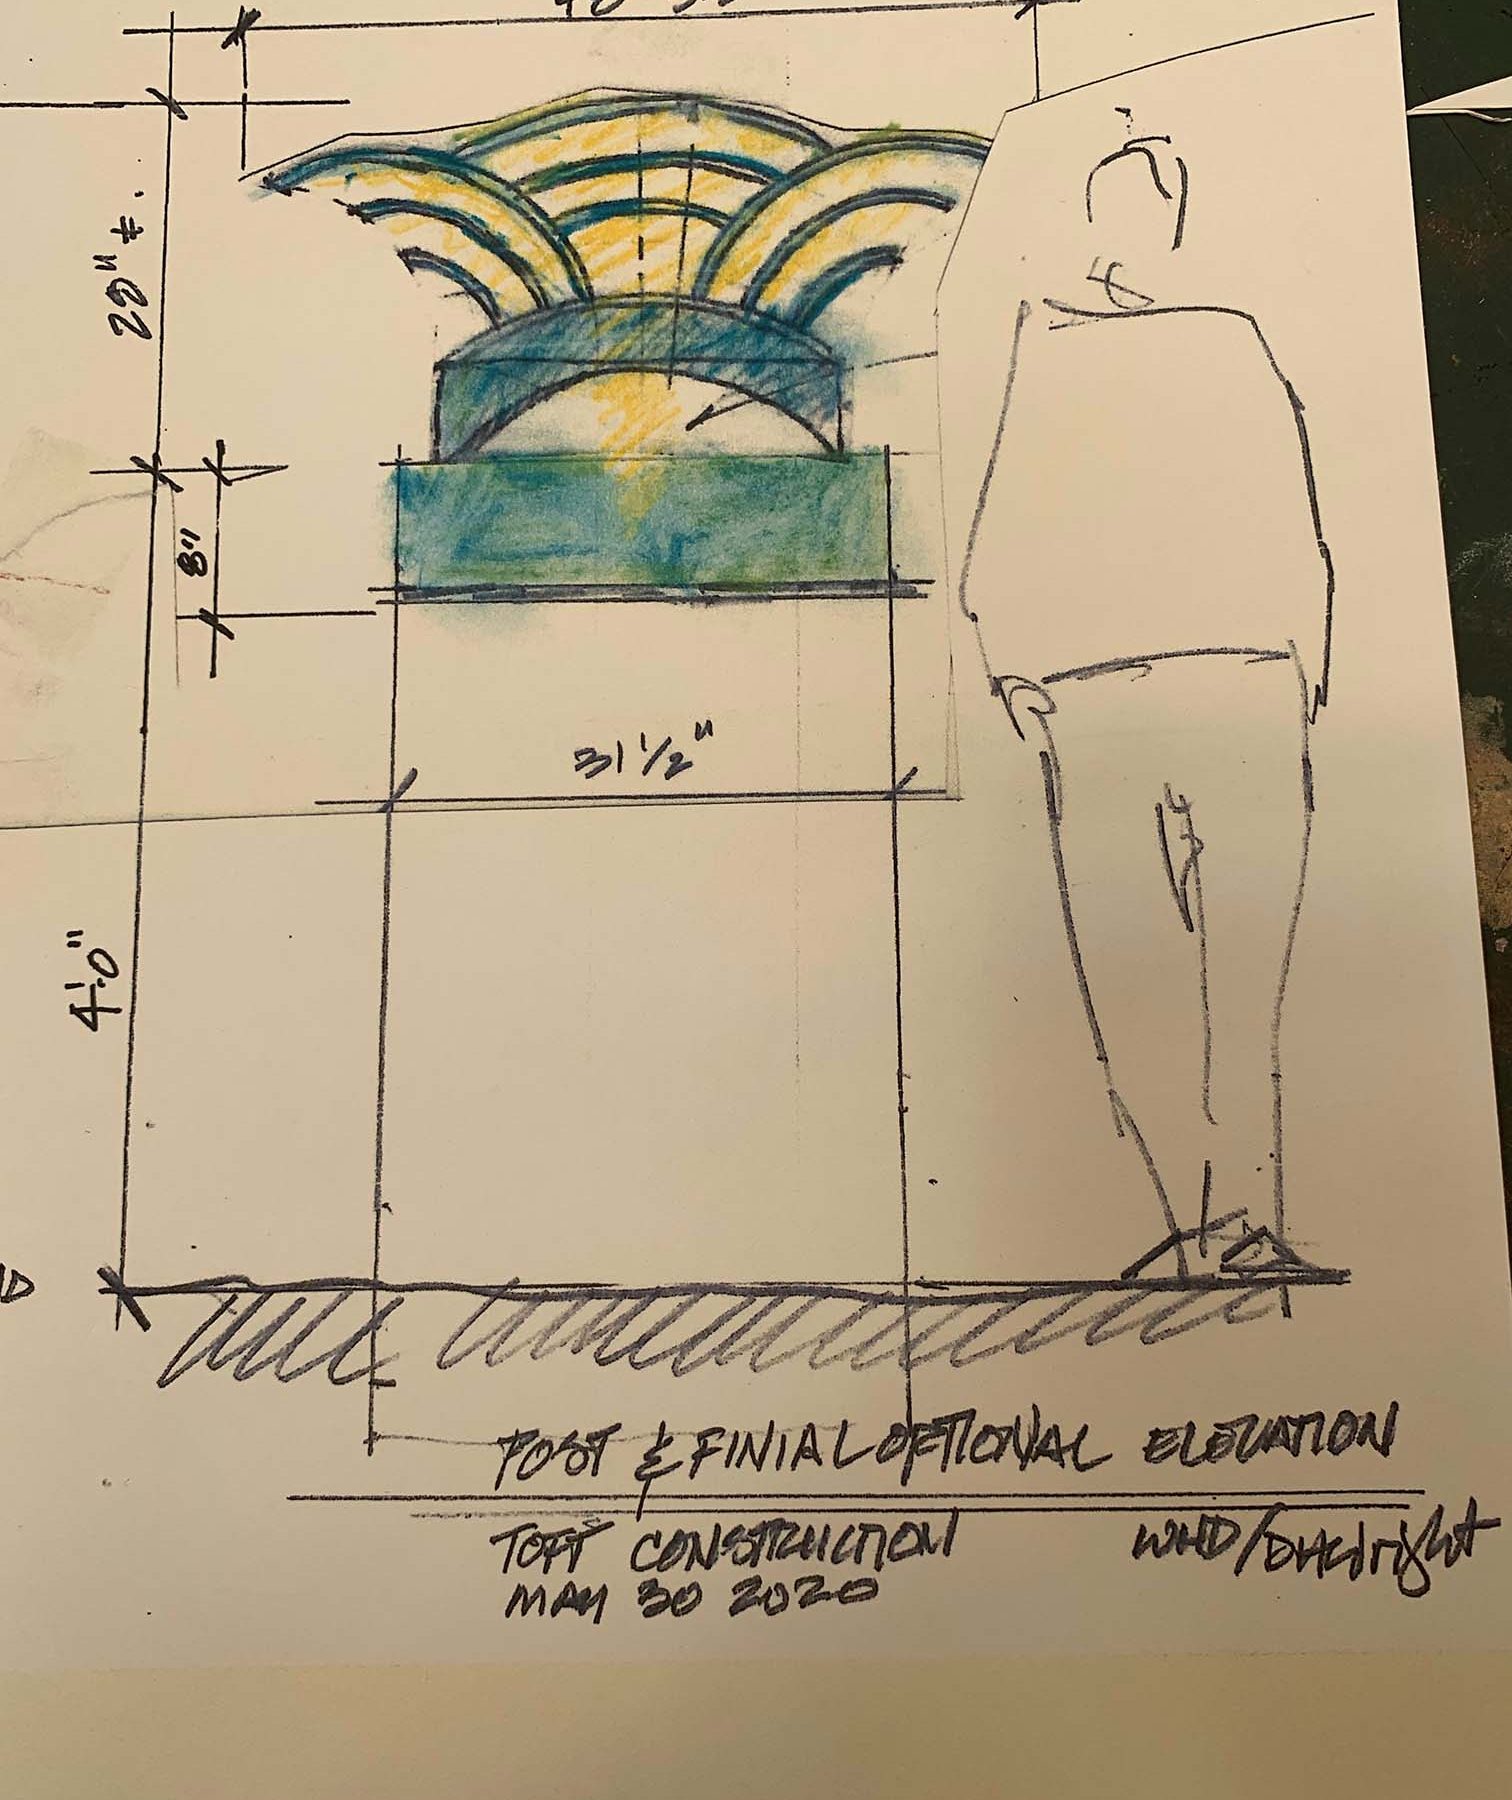 20" ±.
8"
31 1/2"
4'-0"
POST & FINIAL OPTIONAL ELEVATION
TOFT CONSTRUCTION
MAY 30 2020